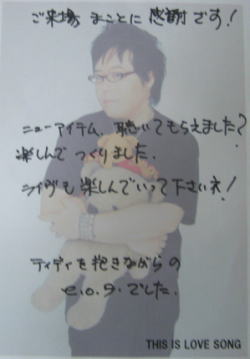 ご来場 まことに 感謝 です!
ニューアイテム、聴いてもらえました?
楽しんで つくりました.
ライヴも 楽しんでいって下さいネ!
テディを抱きながらの
e.o.g.でした.
THIS IS LOVE SONG